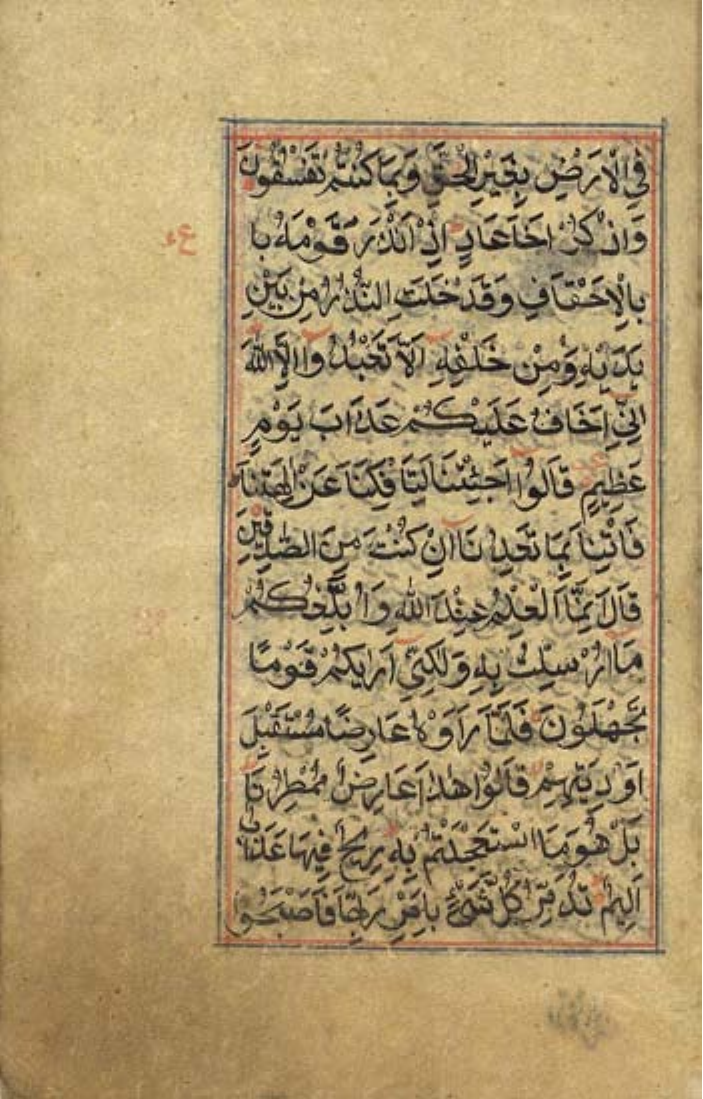 فِي الْاَرْضِ بِغَيْرِ الْحَقِّ وَبِمَا كُنْتُمْ تَفْسُقُونَ
وَاذْكُرْ اَخَاعَادٍ اِذْ اَنْذَرَ قَوْمَهُ با
بِالْاَحْقَافِ وَقَدْ خَلَتِ النُّذُرُ مِنْ بَيْنِ
يَدَيْهِ وَمِنْ خَلْفِهِ اَلَّا تَعْبُدُوا اِلَّا اللّٰهَ
اِنِّي اَخَافُ عَلَيْكُمْ عَذَابَ يَوْمٍ
عَظِيمٍ قَالُوا اَجِئْتَنَا لِتَاْفِكَنَا عَنْ اٰلِهَتِنَا
فَاْتِنَا بِمَا تَعِدُنَا اِنْ كُنْتَ مِنَ الصّٰدِقِينَ
قَالَ اِنَّمَا الْعِلْمُ عِنْدَ اللّٰهِ وَاُبَلِّغُكُمْ
مَا اُرْسِلْتُ بِهِ وَلٰكِنِّي اَرٰيكُمْ قَوْمًا
تَجْهَلُونَ فَلَمَّا رَاَوْهُ عَارِضًا مُسْتَقْبِلَ
اَوْدِيَتِهِمْ قَالُوا هٰذَا عَارِضٌ مُمْطِرُنَا
بَلْ هُوَ مَا اسْتَعْجَلْتُمْ بِهِ رِيحٌ فِيهَا عَذَابٌ
اَلِيمٌ تُدَمِّرُ كُلَّ شَيْءٍ بِاَمْرِ رَبِّهَا فَاَصْبَحُوا